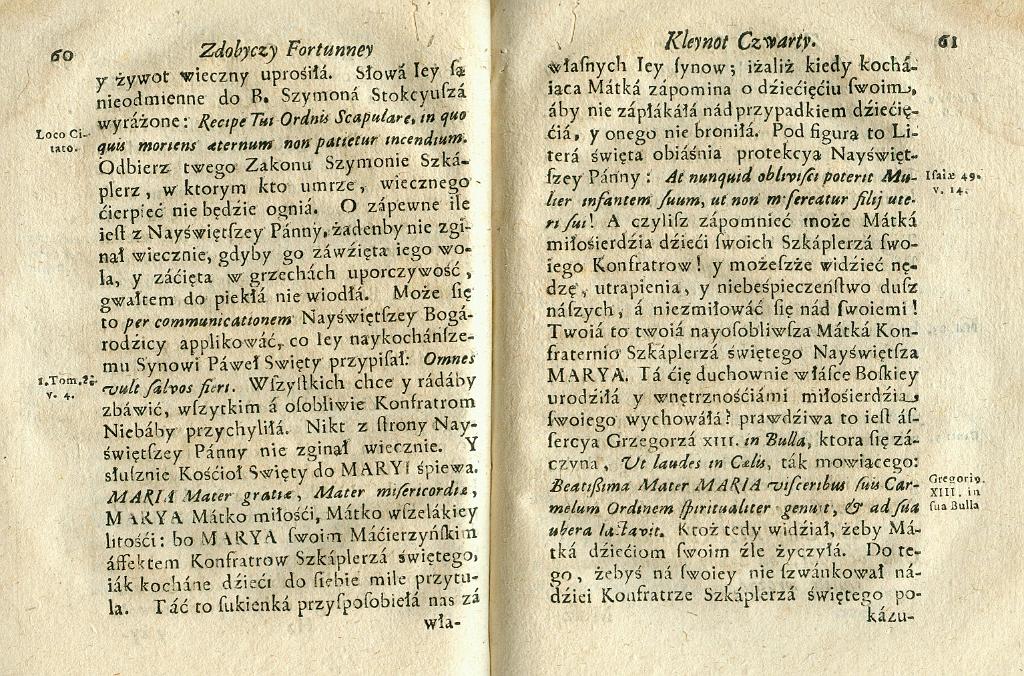 60
Zdobyczy Fortunney
y żywot wieczny uprośiłá. Słowá Iey ſą
nieodmienne do B. Szymoná Stokcyuſzá
wyráżone: Recipe Tui Ordnis Scapulare, in quo
Loco Ci-
tato.
quis moriens æternum non patietur incendium.
Odbierz twego Zakonu Szymonie Szká-
plerz, w ktorym kto umrze, wiecznego
ćierpieć nie będzie ogniá. O zápewne ile
ieſt z Nayświętſzey Pánny, żadenby nie zgi-
nał wiecznie, gdyby go záwźięta iego wo-
la, y záćięta w grzechách uporczywość,
gwałtem do piekłá nie wiodłá. Może ſię
to per communicationem Nayświętſzey Bogá-
rodźicy applikowáć, co Iey naykochánſze-
mu Synowi Páweł Swięty przypiſał: Omnes
1. Tom. 2.
v. 4.
vult ſalvos fieri. Wſzyſtkich chce y rádáby
zbáwić, wſzytkim á oſobliwie Konfratrom
Niebáby przychyliłá. Nikt z ſtrony Nay-
świętſzey Pánny nie zginął wiecznie. Y
słuſznie Kośćioł Swięty do MARYI śpiewa.
MARIA Mater gratiæ, Mater miſericordiæ,
MARYA Mátko miłośći, Mátko wſzelákiey
litośći: bo MARYA ſwoim Máćierzyńſkim
áffektem Konfratrow Szkáplerzá świętego,
iák kocháne dźieći do ſiebie mile przytu-
la. Táć to ſukienká przyſpoſobiełá nas zá
wła-
Kleynot Czwarty.
61
własnych Iey ſynow; iżaliż kiedy kochá-
iąca Mátká zápomina o dźiećięćiu ſwoim,
áby nie zápłákáłá nád przypadkiem dźiećię-
ćiá, y onego nie broniłá. Pod figurą to Li-
terá święta obiáśnia protekcya Nayświęt-
ſzey Pánny: At nunquid obliviſci poterit Mu-
Iſaiæ 49.
v. 14.
lier infantem ſuum, ut non miſereatur filij ute-
ri ſui! A czyliſz zápomnieć może Mátká
miłośierdźia dźieći ſwoich Szkáplerzá ſwo-
iego Konfratrow! y możeſzże widźieć nę-
dzę, utrapienia, y niebeśpieczeńſtwo duſz
náſzych, á niezmiłowáć ſię nád ſwoiemi!
Twoiá to twoiá nayoſobliwſza Mátká Kon-
fraternio Szkáplerzá świętego Nayświętſza
MARYA. Tá ćię duchownie w łáſce Boſkiey
urodźiłá y wnętrznośćiámi miłośierdźia
ſwoiego wychowáłá? prawdźiwa to ieſt áſ-
ſercya Grzegorzá XIII. in Bulla, ktora ſię zá-
czyna, Ut laudes in Cælis, ták mowiącego:
Beatiſſima Mater MARIA viſceribus ſuis Car-
Gregoriꝰ.
XIII. in
ſua Bulla
melum Ordinem ſpiritualiter genuit, & ad ſua
ubera lactavit. Ktoż tedy widźiał, żeby Má-
tká dźiećiom ſwoim źle życzyłá. Do te-
go, żebyś ná ſwoiey nie ſzwánkował ná-
dźiei Konfratrze Szkáplerzá świętego po-
kázu-